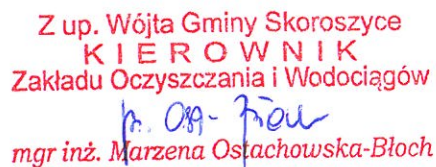 Z up. Wójta Gminy Skoroszyce
KIEROWNIK
Zakładu Oczyszczania i Wodociągów
mgr inż. Marzena Ostachowska-Błoch